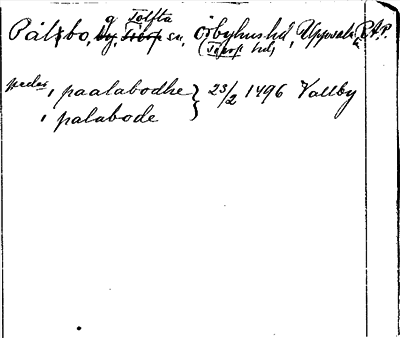 g Tolfta
Pålsbo, by, Tierp sn, Örbyhus hd, Uppsala l. P.A.P.
(Tierps hd)
peder i paalabodhe } 23/2 1496 Vallby
i palabode